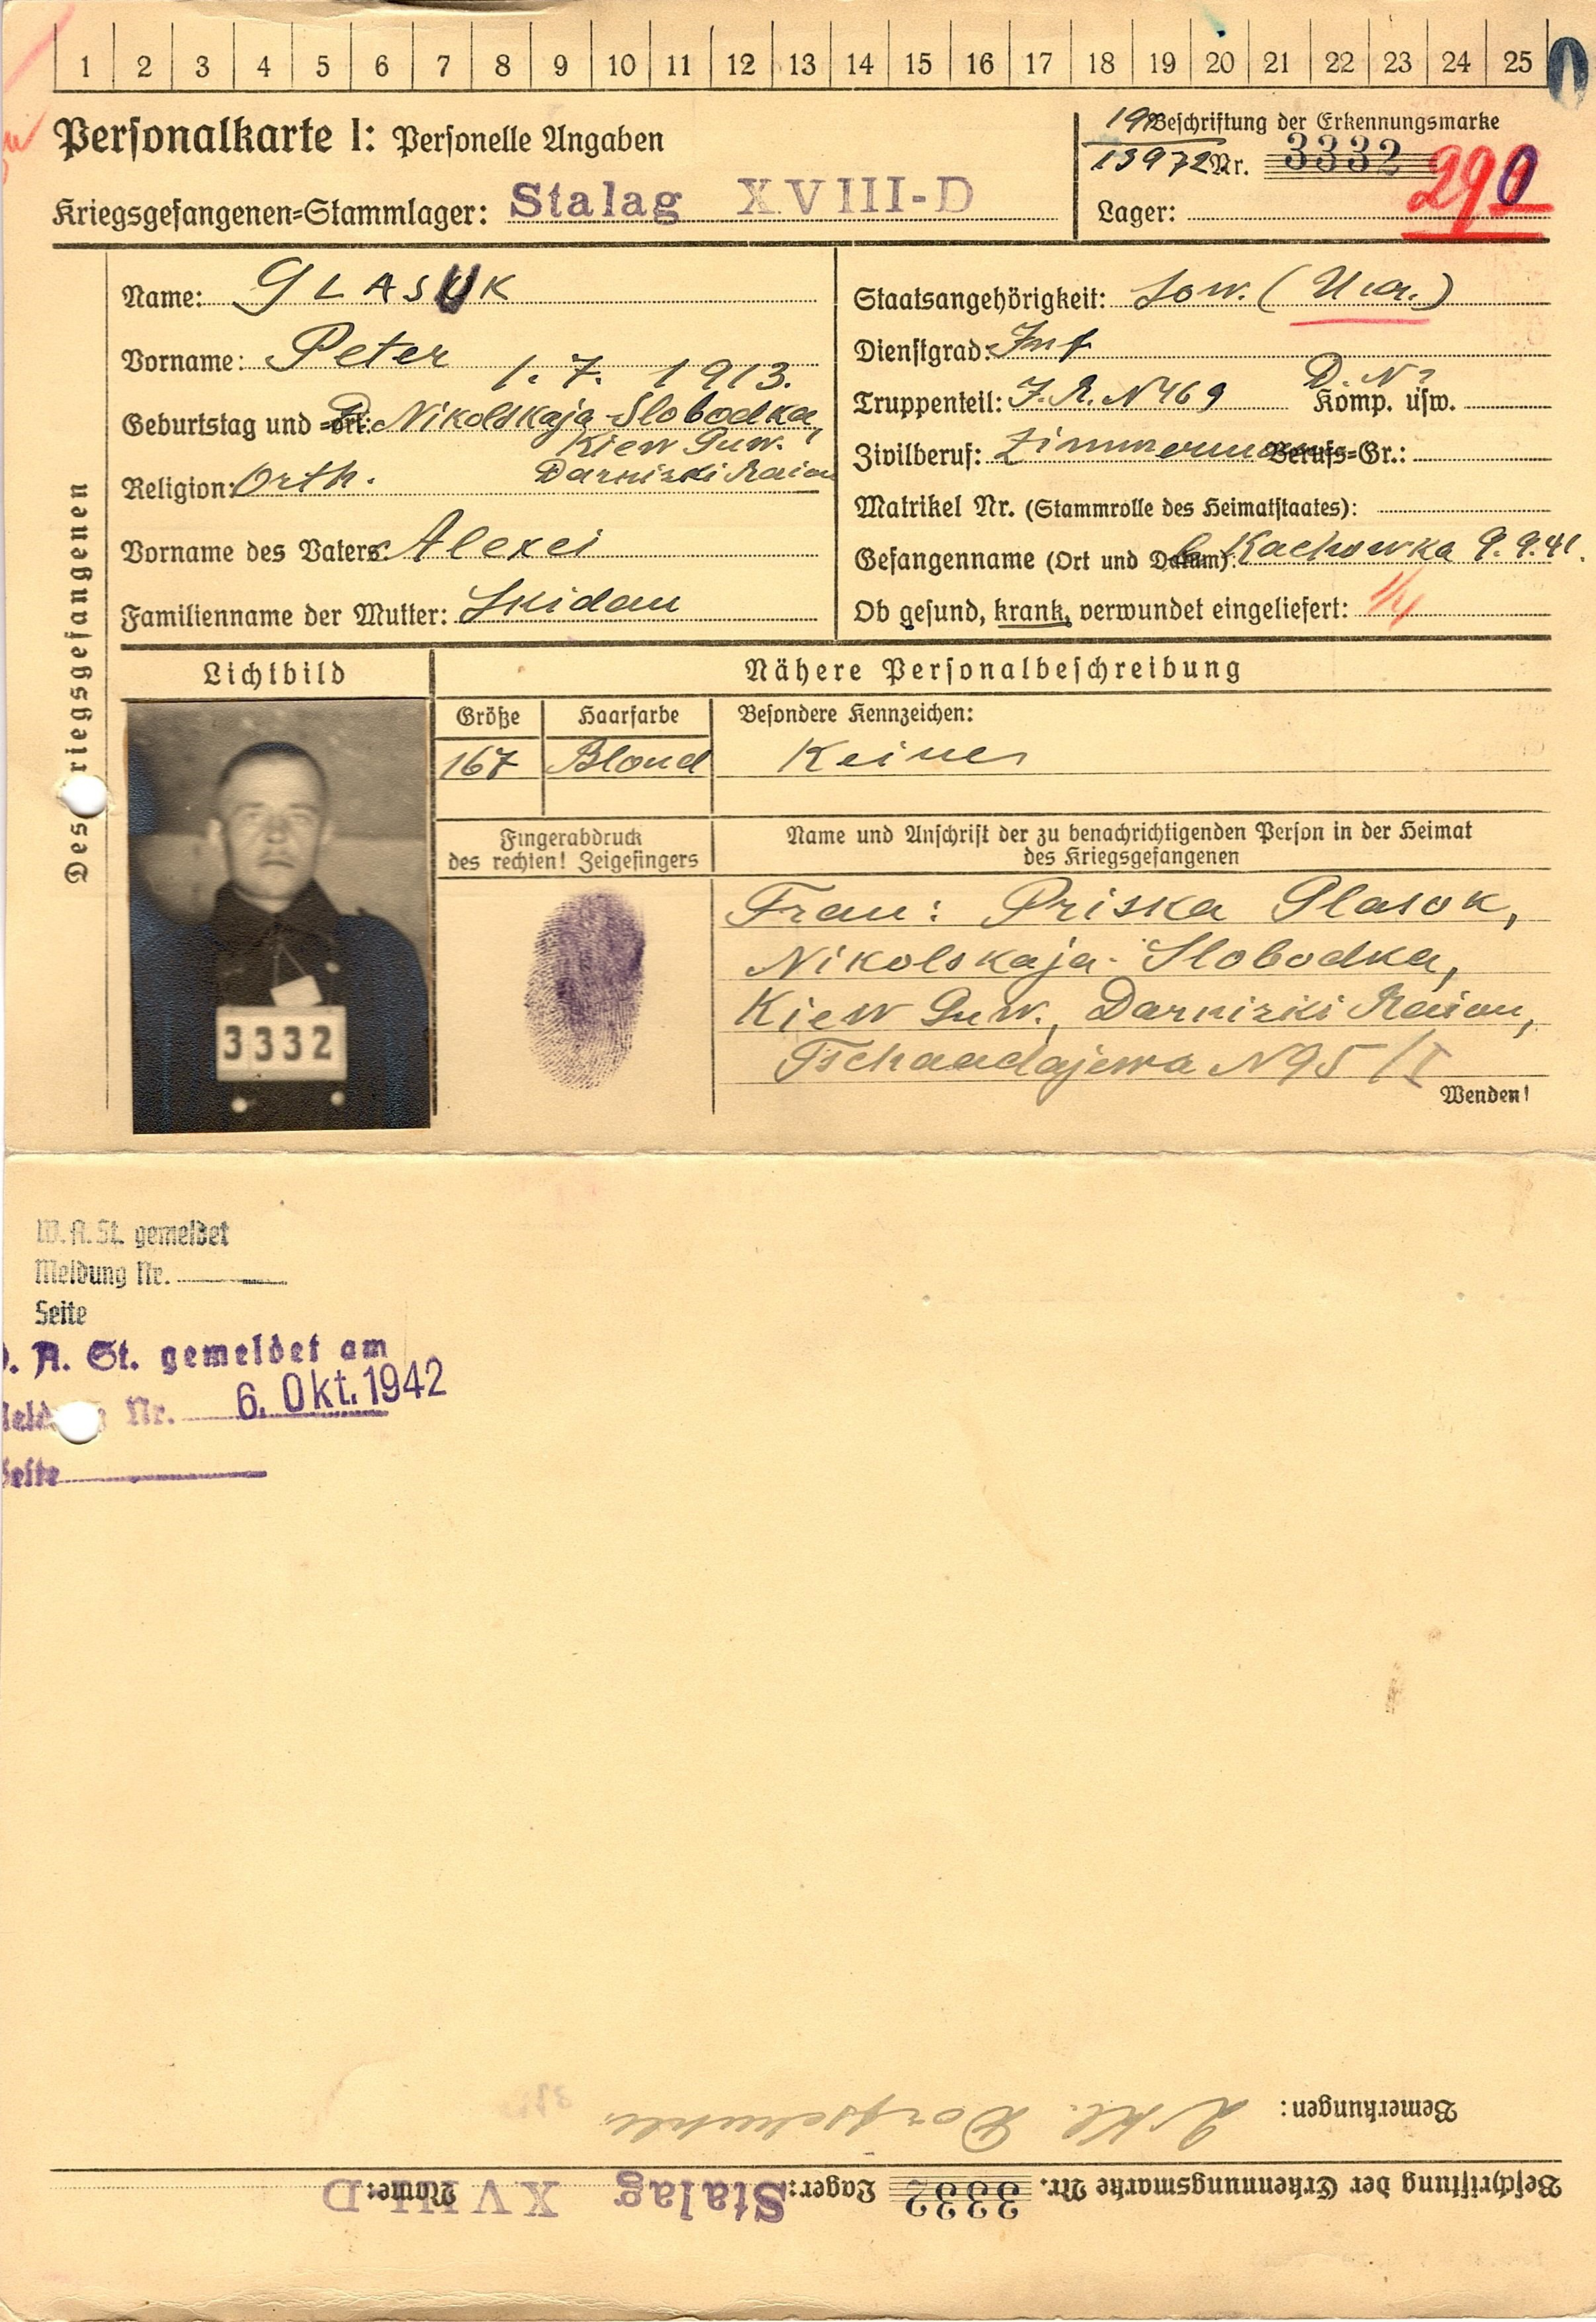 1 2 3 4 5 6 7 8 9 10 11 12 13 14 15 16 17 18 19 20 21 22 23 24 25
Personalkarte I: Personelle Angaben
Kriegsgefangenen=Stammlager: Stalag XVIII-D
Beschriftung der Erkennungsmarke
13972 Nr. 3332
290
Lager:
Des Kriegsgefangenen
Name: GLASUK
Vorname: Peter
1. 7. 1913.
Geburtstag und =Ort: Nikolskaja-Slobodka,
Kiew Guw.
Religion: Orth. Darnizki Raion
Vorname des Vaters: Alexei
Familienname der Mutter: Skidan
Staatsangehörigkeit: Sow. (
Dienstgrad: Inf
Truppenteil: J.R. N469 Komp. usw.
D. N?
Zivilberuf: Zimmermann Berufs=Gr.:
Matrikel Nr. (Stammrolle des Heimatstaates):
Gefangenname (Ort und Datum): b. Kachowka 9.9.41.
Ob gesund, krank, verwundet eingeliefert:
Lichtbild
3332
Nähere Personalbeschreibung
Größe Haarfarbe Besondere Kennzeichen:
167 Blond Keine
Fingerabdruck
des rechten! Zeigefingers
Name und Anschrift der zu benachrichtigenden Person in der Heimat
des Kriegsgefangenen
Frau: Priska Glasok,
Nikolskaja-Slobodka,
Kiew Guw., Darnizki Raion,
Tschaadajewa N95/I
Wenden!
W.A.St. gemeldet
Meldung Nr.
Seite
. A. St. gemeldet am
Nr. 6. Okt. 1942
Seite
Bemerkungen: 2 Kl. Dorfschule
Beschriftung der Erkennungsmarke Nr. 3332 Lager: Stalag XVIII D Name: